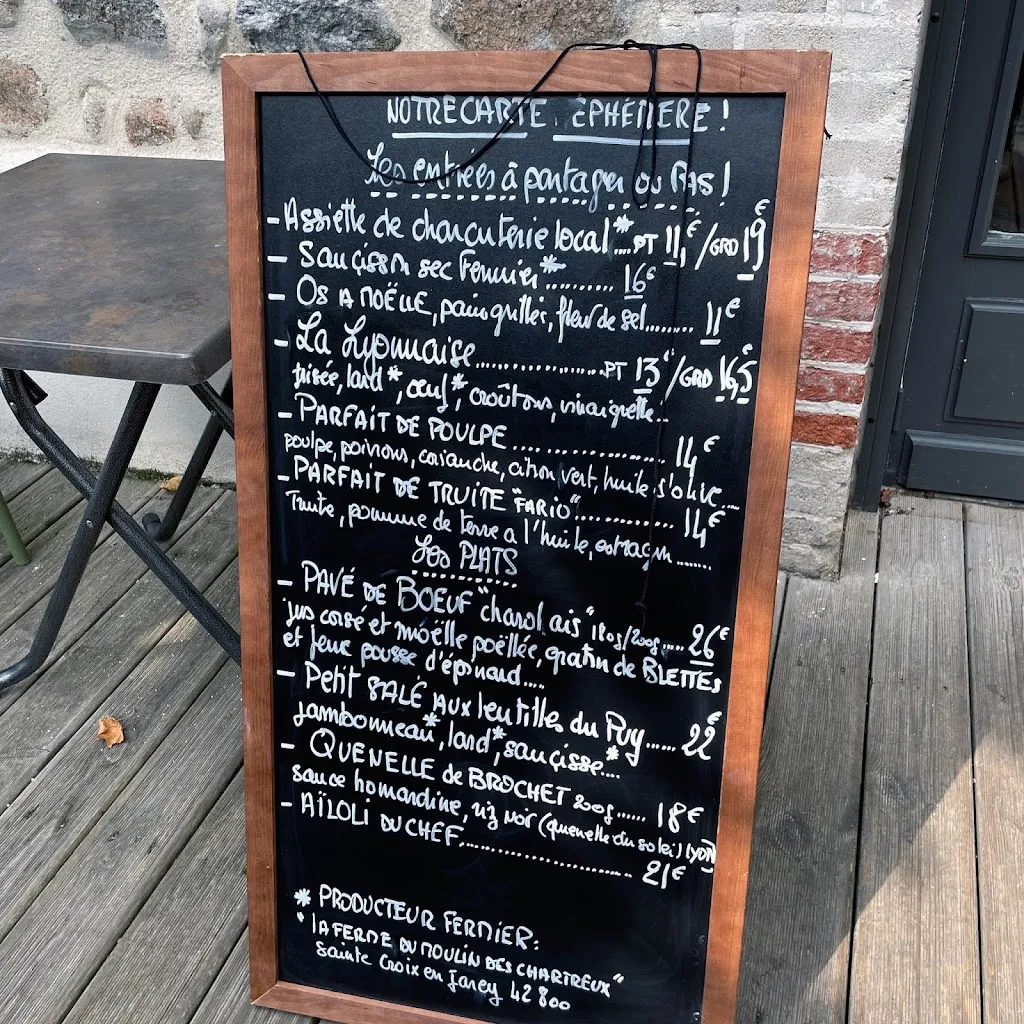 NOTRE CARTE ÉPHÉMÈRE !
Les entrées à partager ou PAS !
- Assiette de charcuterie local* .... PT 11,€ / GRD 19€
- Saucisson sec Fermier* .......... 16€
- OS A MOËLLE, pain grillés, fleur de sel ........ 11€
- La Lyonnaise .................. PT 13€ / GRD 16,5€
frisée, lard*, œuf*, croûtons, vinaigrette..
- PARFAIT DE POULPE .................. 14€
poulpe, poivrons, coriandre, citron vert, huile d'olive....
- PARFAIT DE TRUITE "FARIO" ............... 14€
Truite, pomme de terre a l'huile, estragon .......
Les PLATS
- PAVÉ DE BOEUF "charolais" 180g/200g .... 26€
jus corsé et moëlle poëllée, gratin de BLETTES
et jeune pousse d'épinard....
- Petit SALÉ AUX lentilles du Puy ..... 22€
Jambonneau*, lard*, saucisse*....
- QUENELLE de BROCHET 200g ...... 18€
sauce homardine, riz noir (quenelle du soleil) LYON
- AÏLOLI DU CHEF .................. 21€
* PRODUCTEUR FERMIER:
"LA FERME DU MOULIN DES CHARTREUX"
Sainte Croix en Jarez 42 800